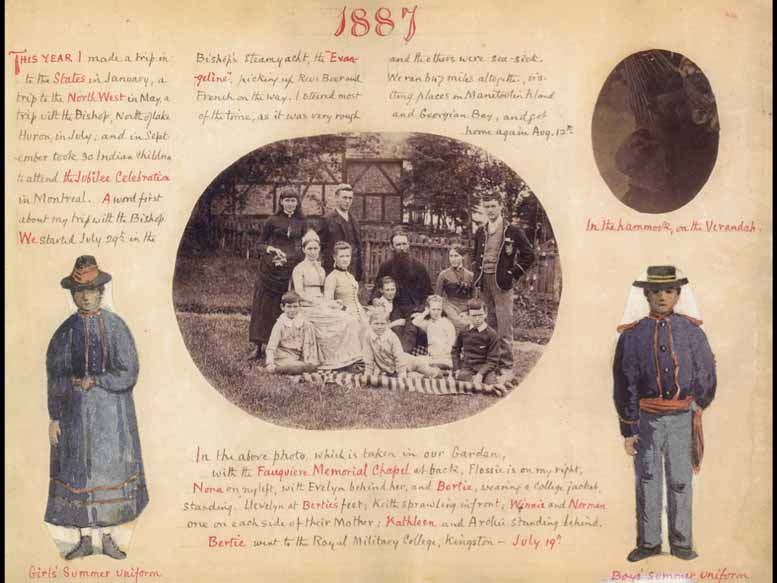 1887
THIS YEAR I made a trip in
to the States in January, a
trip to the North West in May, a
trip with the Bishop, North of Lake
Huron, in July; and in Sept
ember took 30 Indian Children
to attend the Jubilee Celebration
in Montreal. A word first
about my trip with the Bishop.
We started July 29th in the
Bishop's Steam yacht, the "Evan-
geline", picking up Revs Beer and
French on the way. I steered most
of the time, as it was very rough
and the others were sea-sick.
We ran 647 miles altogether, vis-
iting places on Manitoulin Island
and Georgian Bay, and got
home again Aug. 12th
In the hammock, on the Verandah.
In the above photo, which is taken in our Garden,
with the Fauquiere Memorial Chapel at back, Flossie is on my right,
Nona on my left, with Evelyn behind her, and Bertie, wearing a College jacket,
standing. Llewelyn at Bertie's feet; Keith sprawling in front; Winnie and Norman
one on each side of their Mother; Kathleen and Archie standing behind.
Bertie went to the Royal Military College, Kingston – July 19th
Girls' Summer uniform
Boys' Summer uniform